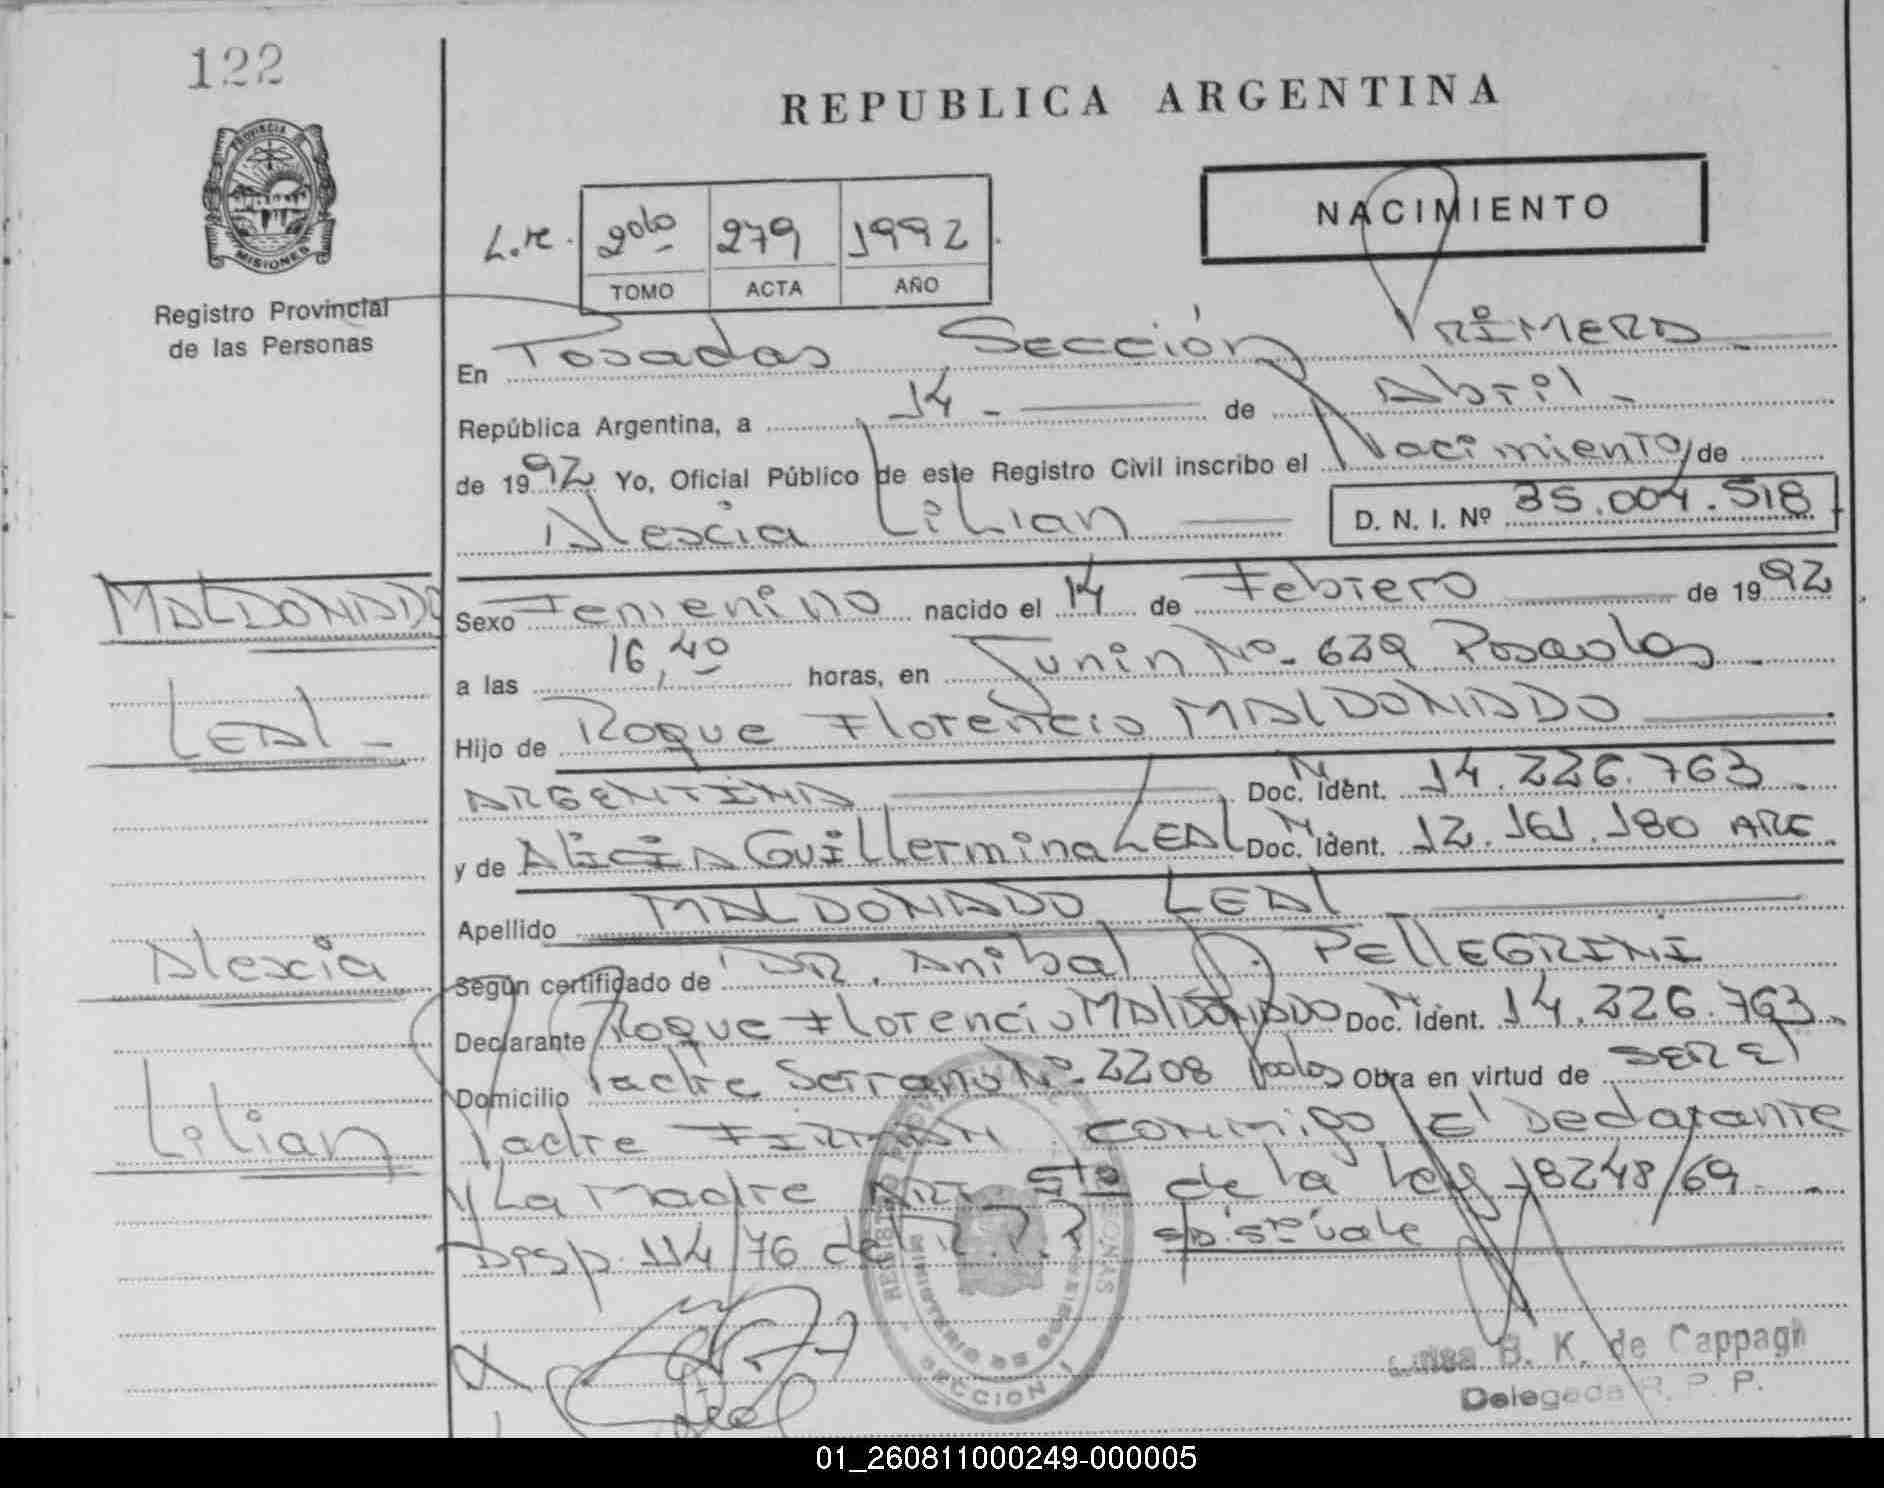 122
REPUBLICA ARGENTINA
PROVINCIA
MISIONES
Registro Provincial
de las Personas
NACIMIENTO
L.re. 2do 279 1992
TOMO ACTA AÑO
En Posadas Sección PRiMERA
República Argentina, a 14 - de Abril -
de 1992 Yo, Oficial Público de este Registro Civil inscribo el Nacimiento de
Alexia Lilian D. N. I. Nº 35.004.518
MALDONADO
LEAL -
Alexia
Lilian
Sexo Femenino nacido el 14 de Febrero de 1992
a las 16,40 horas, en Junin No- 639 Posadas
Hijo de Roque Florencio MALDONADO
ARGENTINA Doc. Ident. 14.226.763
y de Alicia Guillermina LEAL Doc. Ident. 12.161.180 ARG.
Apellido MALDONADO LEAL
Según certificado de DR. Anibal PELLEGRINI
Declarante Roque Florencio MALDONADO Doc. Ident. 14.226.763
Domicilio Padre Serrano No- 2208 Pdas Obra en virtud de SER El
Padre FIRMAN conmigo El Declarante
y La Madre ART 5to de la Ley 18248/69
Disp. 114/76 del R.P.P.
SECCION 1
B. K. de Cappagli
Delegada R. P. P.
01_260811000249-000005